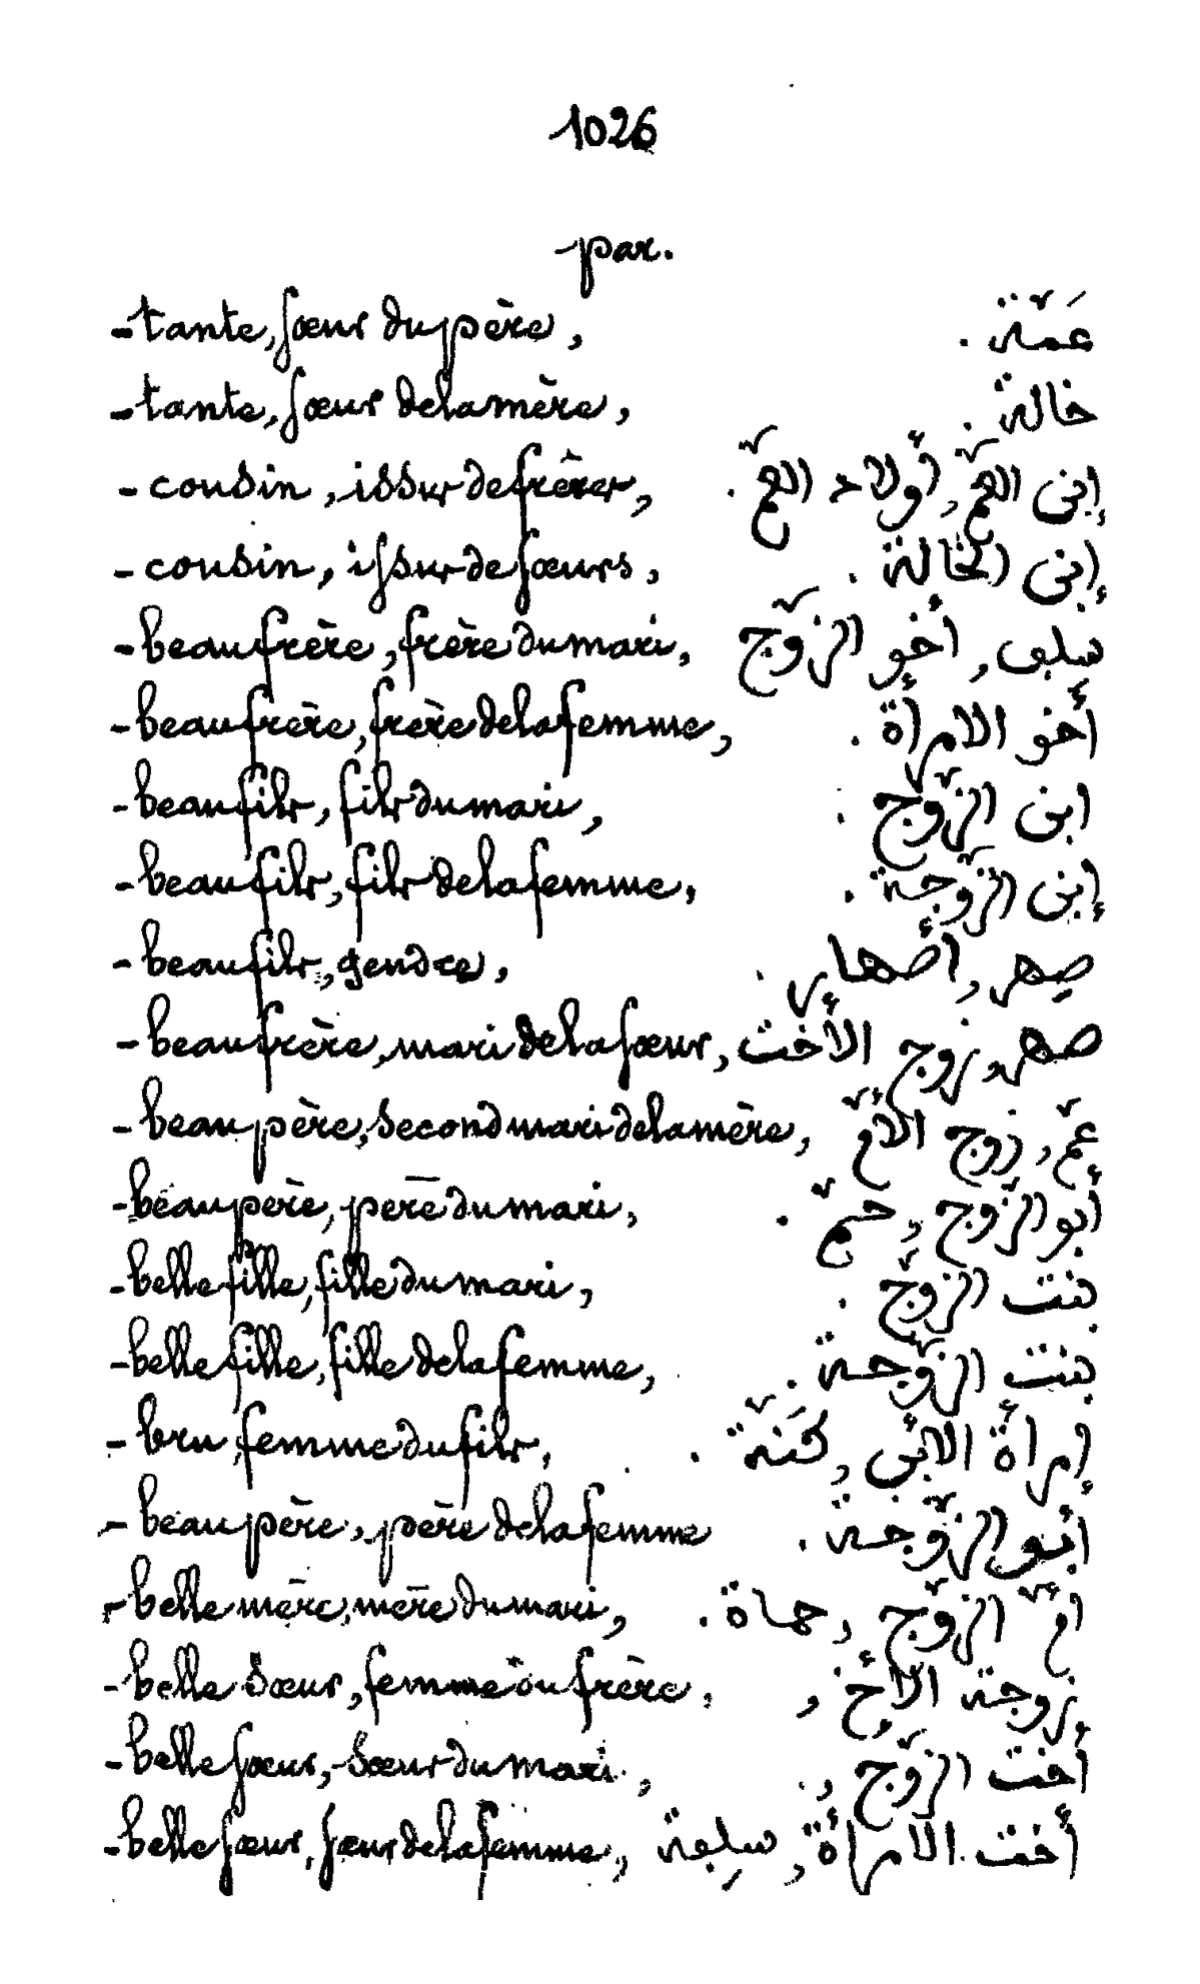 1026
par.
- tante, sœur du père, عَمّة .
- tante, sœur de la mère, خالة .
- cousin, issus de frères, إبن العمّ, أولاد العمّ .
- cousin, issus de sœurs, إبن الخالة .
- beau frère, frère du mari, سلف, أخو الزوّج
- beau frère, frère de la femme, أخو الامرأة .
- beau fils, fils du mari, ابن الزوّج .
- beau fils, fils de la femme, إبن الزوّجة .
- beau fils, gendre, صِهر, أصهار .
- beau frère, mari de la sœur, صهر, زوج الأخت
- beau père, second mari de la mère, عمّ, زوج الأمّ
- beau père, père du mari, أبو الزوّج, حمّ .
- belle fille, fille du mari, بنت الزوّج .
- belle fille, fille de la femme, بنت الزوّجة .
- bru, femme du fils, إمرأة الإبن, كَنّة .
- beau père, père de la femme أبو الزوّجة .
- belle mère, mère du mari, أمّ الزوّج, حماة .
- belle sœur, femme du frère, زوجة الأخ,
- belle sœur, sœur du mari, أخت الزوّج,
- belle sœur, sœur de la femme, أخت الامرأة, سِلفة